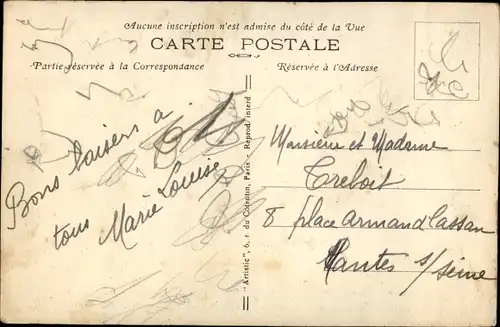 Aucune inscription n'est admise du côté de la Vue
CARTE POSTALE
Partie réservée à la Correspondance
Réserve à l'Adresse
Bons baisers à
tous Marie Louise
"Artistic", 6, r. du Cotentin, Paris - Reprod. interd
Monsieur et Madame
Treboit
8 place Armand Cassan
Mantes s/ Seine